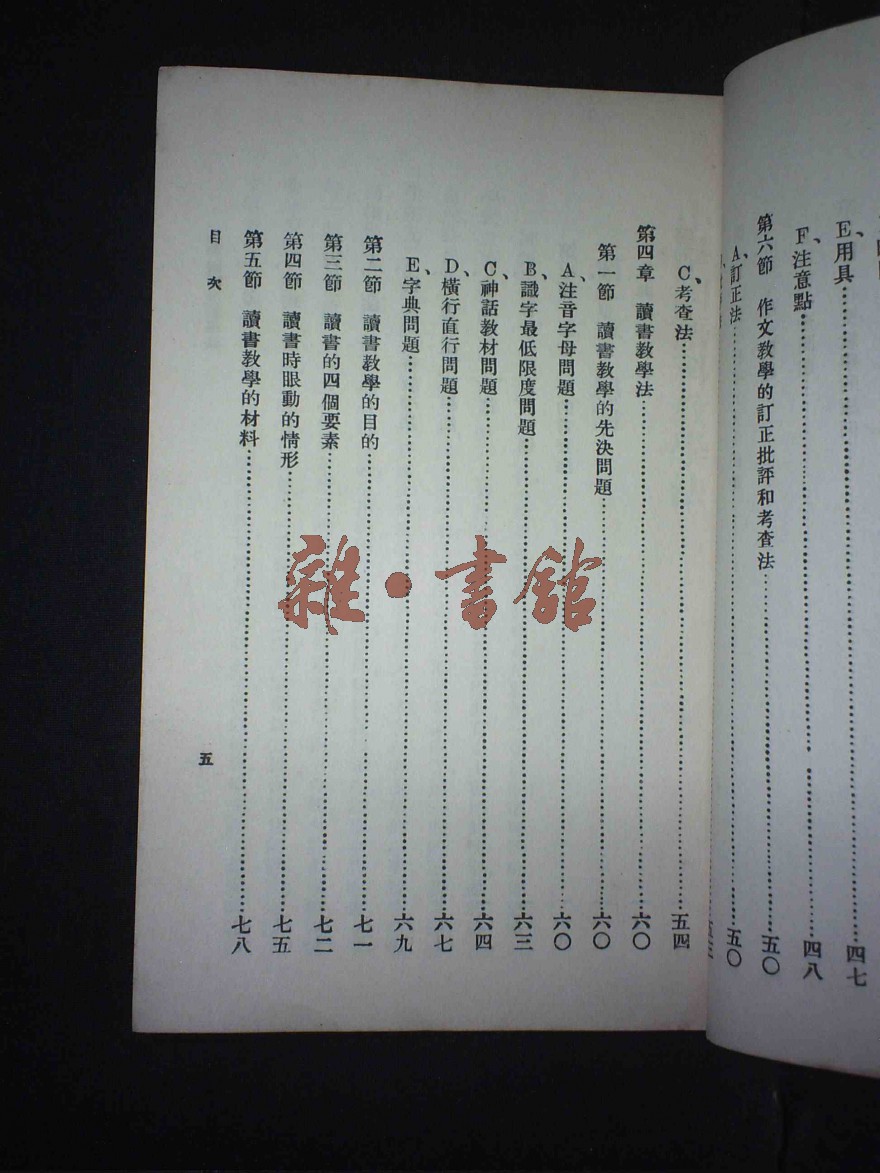 E、用具……四七
F、注意點……四八
第六節 作文教學的訂正批評和考查法……五〇
A、訂正法……五〇
C、考查法……五四
第四章 讀書教學法……六〇
第一節 讀書教學的先決問題……六〇
A、注音字母問題……六〇
B、識字最低限度問題……六三
C、神話教材問題……六四
D、橫行直行問題……六七
E、字典問題……六九
第二節 讀書教學的目的……七一
第三節 讀書的四個要素……七二
第四節 讀書時眼動的情形……七五
第五節 讀書教學的材料……七八
目次
五
雜·書館